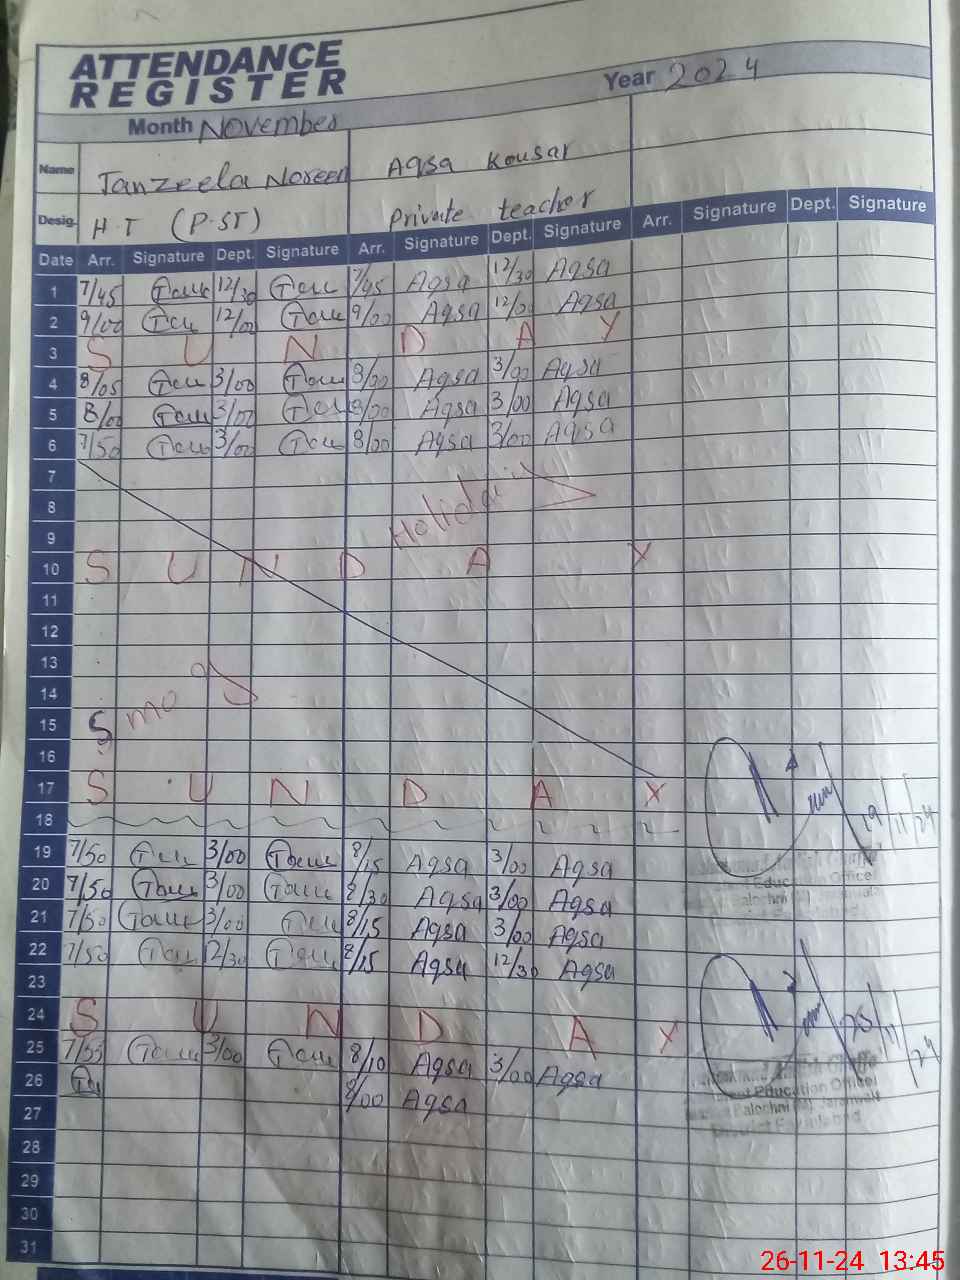 ATTENDANCE
REGISTER
Year 2024
Month November
Name Tanzeela Noreen Aqsa Kousar
Desig. H.T (P.ST) Private teacher
Date Arr. Signature Dept. Signature Arr. Signature Dept. Signature Arr. Signature Dept. Signature
1 7/45 12/30 7/45 Aqsa 12/30 Aqsa
2 9/00 12/00 9/00 Aqsa 12/00 Aqsa
3 S U N D A Y
4 8/05 3/00 8/00 Aqsa 3/00 Aqsa
5 8/00 3/00 8/00 Aqsa 3/00 Aqsa
6 7/50 3/00 8/00 Aqsa 3/00 Aqsa
7
8 Holiday
9
10 S U N D A Y
11
12
13
14
15 Smog
16
17 S U N D A Y
18
19 7/50 3/00 8/15 Aqsa 3/00 Aqsa
19/11/24
20 7/50 3/00 8/30 Aqsa 3/00 Aqsa
Education Officer
21 7/50 3/00 8/15 Aqsa 3/00 Aqsa
22 7/50 12/30 8/15 Aqsa 12/30 Aqsa
23
24 S U N D A Y
25/11/24
25 7/55 3/00 8/10 Aqsa 3/00 Aqsa
26 8/00 Aqsa
Education Officer
27
28
29
30
31
26-11-24 13:45